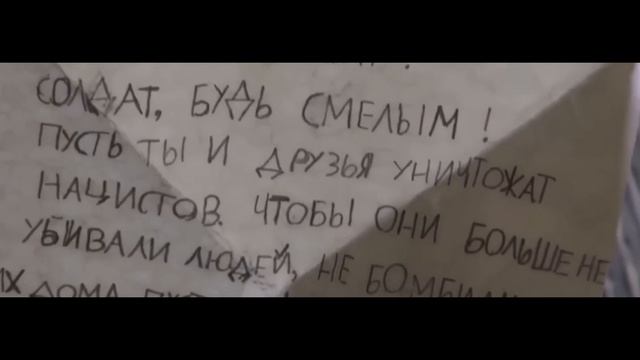 СОЛДАТ, БУДЬ СМЕЛЫМ!
ПУСТЬ ТЫ И ДРУЗЬЯ УНИЧТОЖАТ
НАЦИСТОВ. ЧТОБЫ ОНИ БОЛЬШЕ НЕ
УБИВАЛИ ЛЮДЕЙ, НЕ
ДОМА